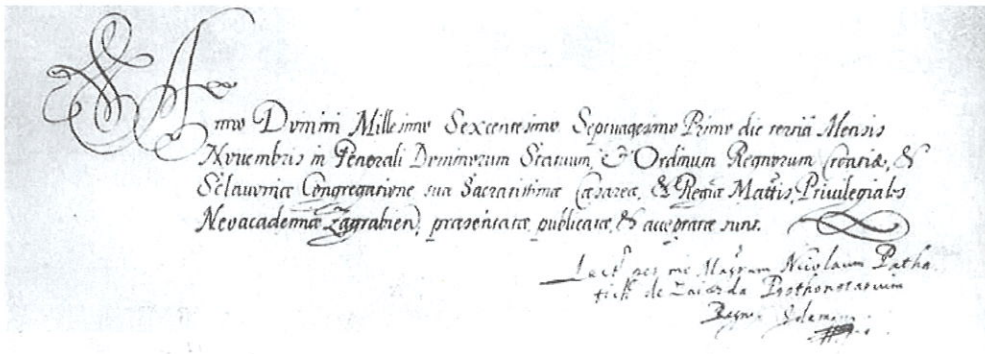 Anno Domini Millesimo Sexcentesimo Septuagesimo Primo die tertia Mensis
Novembris in Generali Dominorum Statuum, & Ordinum Regnorum Croatiæ, &
Sclavoniæ Congregatione sua Sacratissimæ Cæsareæ, & Regiæ Mattis, Privilegiales
Neoacademiæ Zagrabien, præsentatæ, publicatæ, & acceptatæ sunt.
Lect per me Magrum Nicolaum Patha
tich de Zaiezda Prothonotarium
Regni